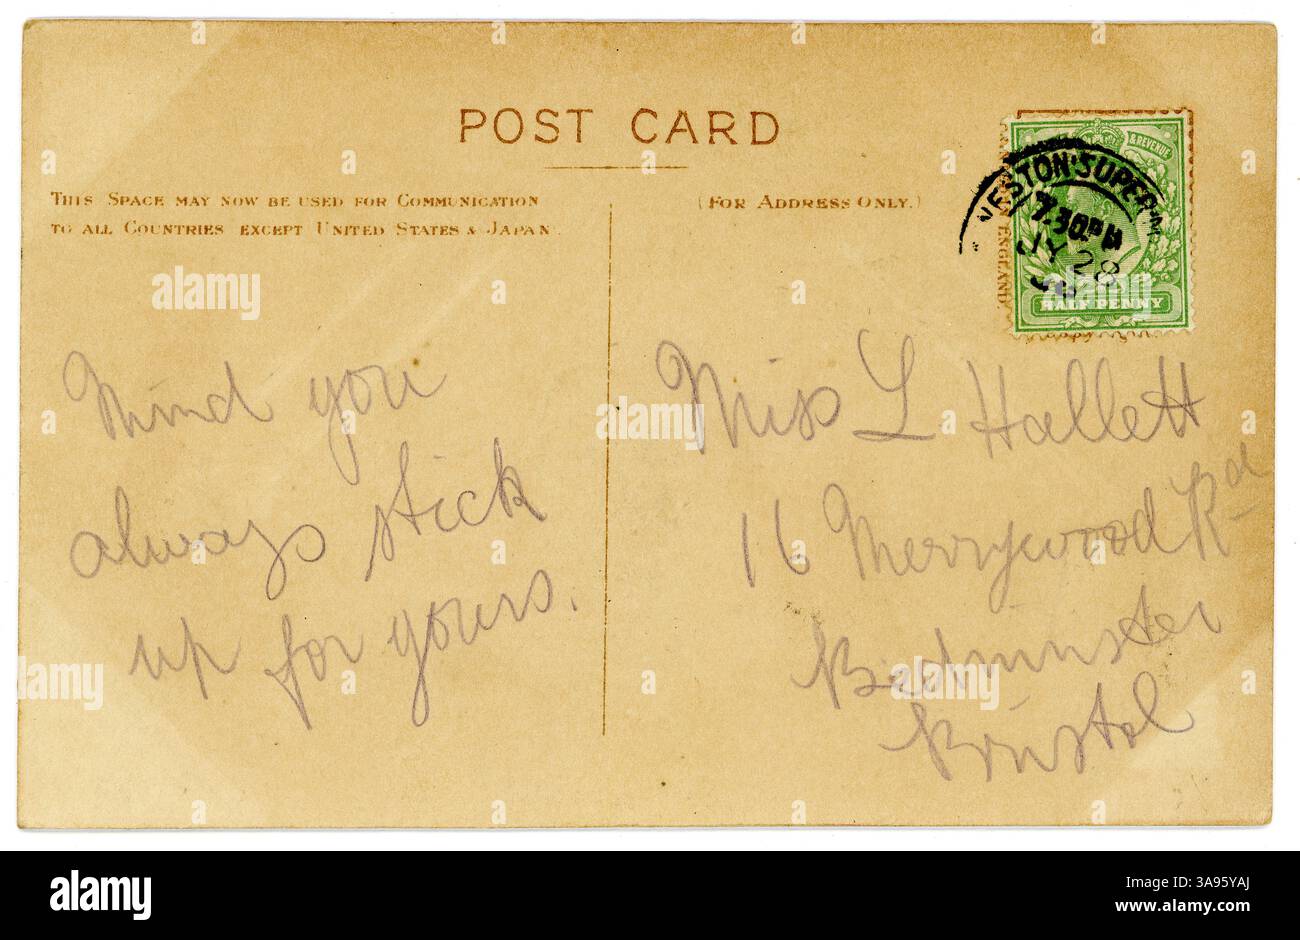 POST CARD
THIS SPACE MAY NOW BE USED FOR COMMUNICATION
TO ALL COUNTRIES EXCEPT UNITED STATES & JAPAN.
(FOR ADDRESS ONLY.)
& REVENUE
WESTON-SUPER-M
7.30PM
JY 28
HALF PENNY
ENGLAND
Mind you
always stick
up for yours.
Miss L Hallett
16 Merrywood Rd
Bedminster
Bristol
alamy
Image ID: 3A95YAJ
www.alamy.com